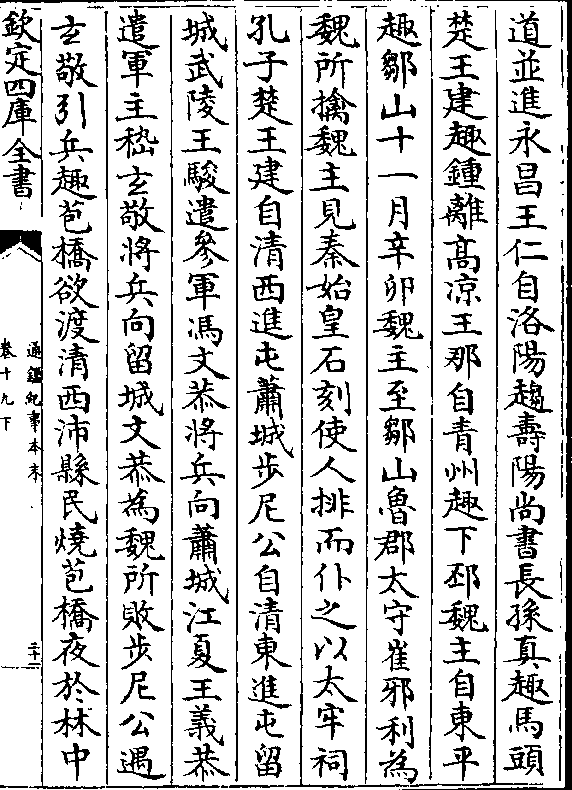 道並進永昌王仁自洛陽趨壽陽尚書長孫真趣馬頭
楚王建趣鍾離高凉王那自青州趣下邳魏主自東平
趣鄒山十一月辛卯魏主至鄒山魯郡太守崔邪利為
魏所擒魏主見秦始皇石刻使人排而仆之以太牢祠
孔子楚王建自清西進屯蕭城步尼公自清東進屯留
城武陵王駿遣參軍馮文恭將兵向蕭城江夏王義恭
遣軍主嵇玄敬將兵向留城文恭為魏所敗步尼公遇
玄敬引兵趣苞橋欲渡清西沛縣民燒苞橋夜於林中
欽定四庫全書
通鑑紀事本末
卷十九下
三十二